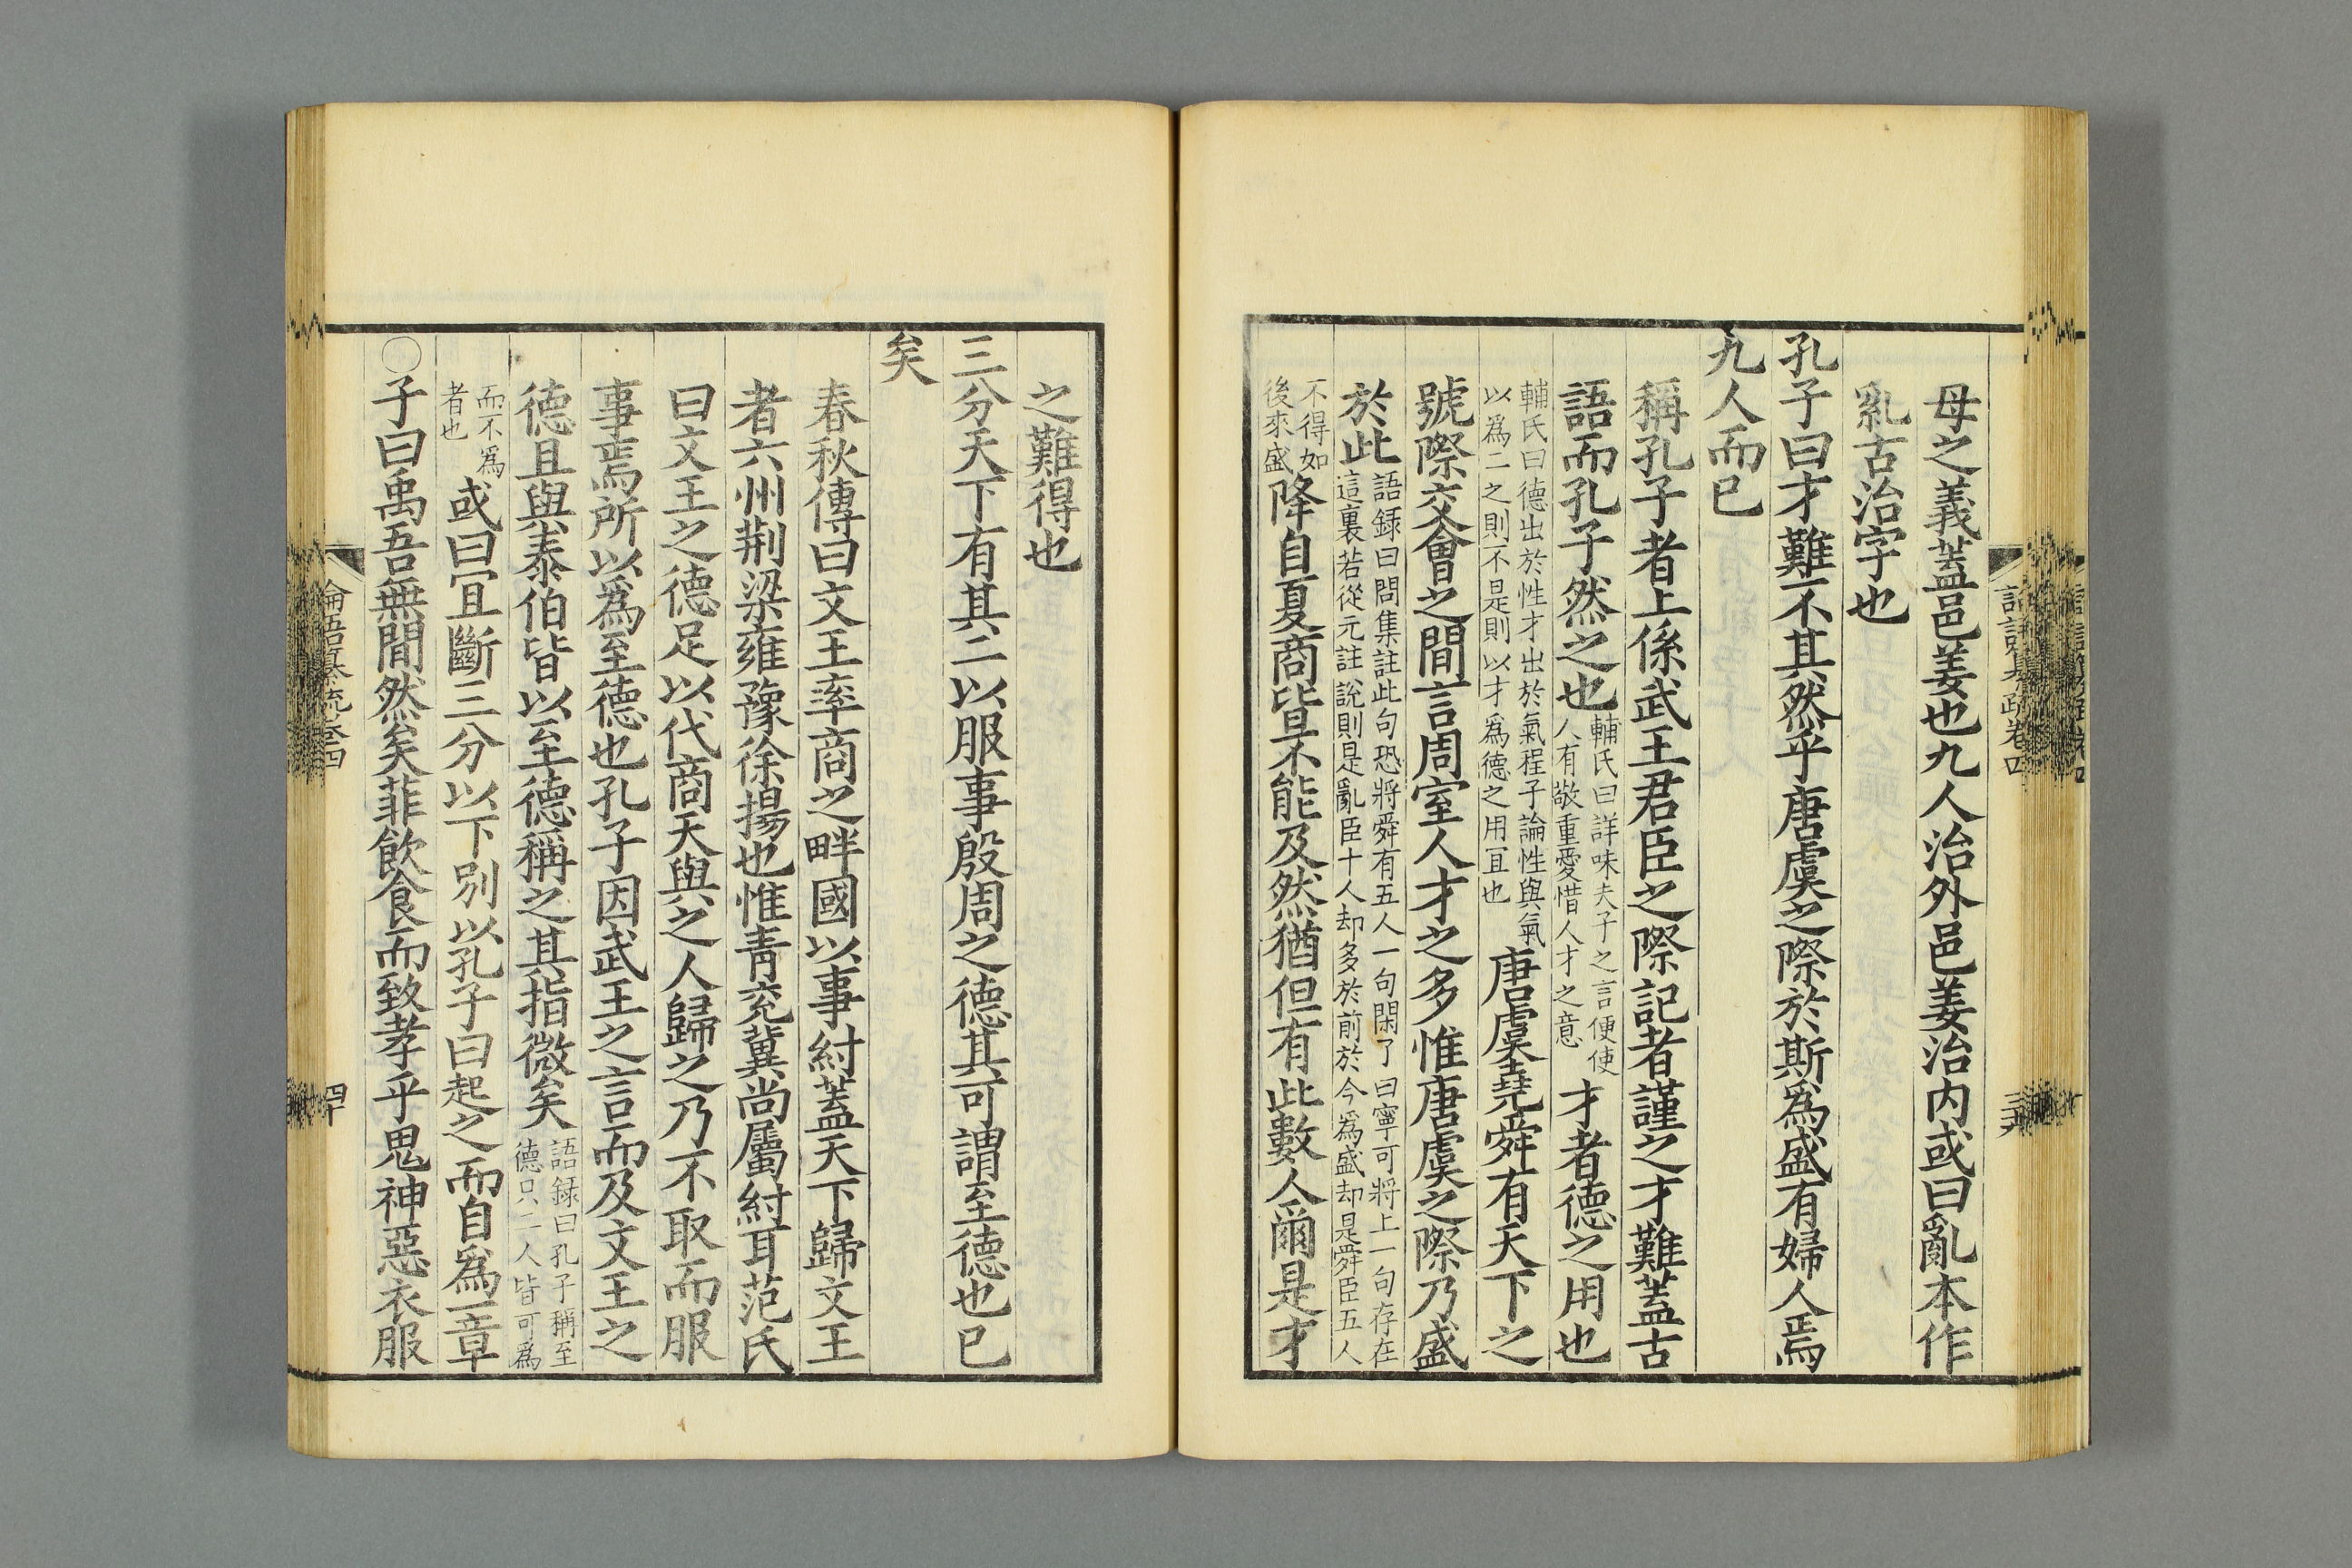 母之義蓋邑姜也九人治外邑姜治内或曰亂本作
乿古治字也
孔子曰才難不其然乎唐虞之際於斯爲盛有婦人焉
九人而已
稱孔子者上係武王君臣之際記者謹之才難蓋古
語而孔子然之也輔氏曰詳味夫子之言便使人有敬重愛惜人才之意才者德之用也
輔氏曰德出於性才出於氣程子論性與氣以爲二之則不是則以才爲德之用冝也唐虞堯舜有天下之
號際交會之間言周室人才之多惟唐虞之際乃盛
於此語録曰問集註此句恐將舜有五人一句閑了曰寧可將上一句存在這裏若從元註說則是亂臣十人却多於前於今爲盛却是舜臣五人
不得如後來盛降自夏商皆不能及然猶但有此數人爾是才
之難得也
三分天下有其二以服事殷周之德其可謂至德也已
矣
春秋傳曰文王率商之畔國以事紂蓋天下歸文王
者六州荆梁雍豫徐揚也惟青兖冀尚屬紂耳范氏
曰文王之德足以代商天與之人歸之乃不取而服
事焉所以爲至德也孔子因武王之言而及文王之
德且與泰伯皆以至德稱之其指微矣語録曰孔子稱至德只二人皆可爲
而不爲者也或曰冝斷三分以下别以孔子曰起之而自爲一章
○子曰禹吾無間然矣菲飲食而致孝乎鬼神惡衣服
論語纂疏卷四
四十